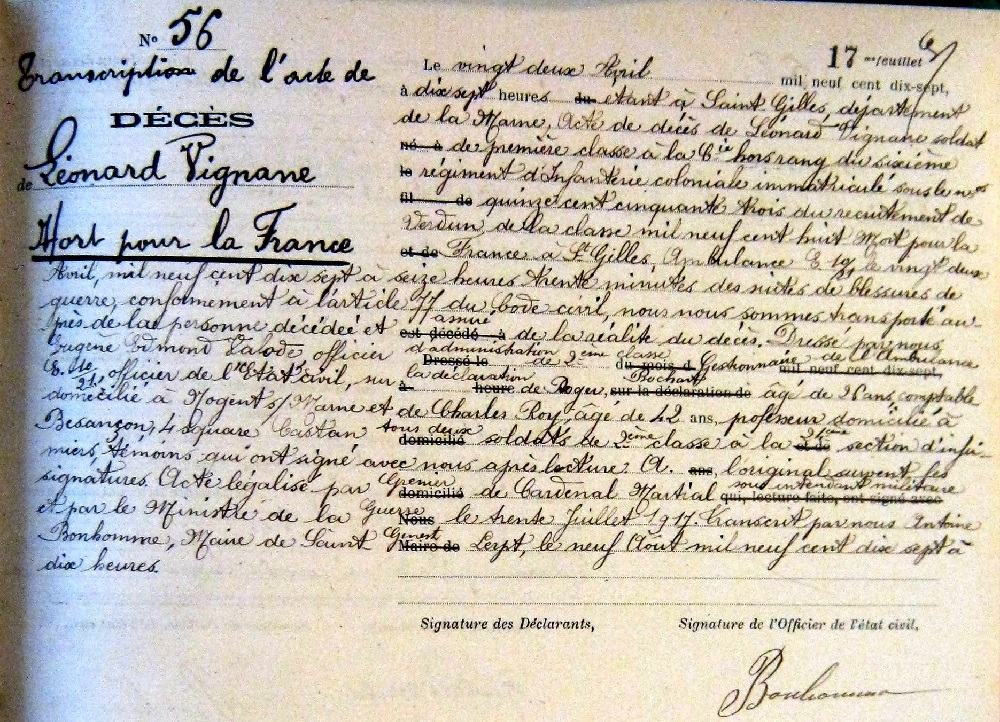 N° 56
17 me feuillet
Transcription de l'acte de
DÉCÈS
de Léonard Vignane
Mort pour la France
Le vingt deux Avril mil neuf cent dix-sept,
à dix sept heures du etant à Saint Gilles, département
de la Marne, Acte de décès de Léonard Vignane soldat
né à de première classe à la Cie hors rang du sixième
le régiment d'Infanterie coloniale immatriculé sous le nos
fil de quinze cent cinquante trois du recrutement de
Verdun, de la classe mil neuf cent huit Mort pour la
et de France à St Gilles, Ambulance E 19, le vingt deux
Avril, mil neuf cent dix sept à seize heures trente minutes des suites de blessures de
guerre, conformément à l'article 77 du Code civil, nous nous sommes transporté au-
près de la personne décédée et assuré est décédé à de la réalité du décès. Dressé par nous
Eugène Edmond officier d'administration de 2ème classe Gestionnaire de l'Ambulance
Dressé le du mois d mil neuf cent dix-sept,
officier de l'Etat civil, sur la déclaration
à heure de Roger, Bochart sur la déclaration de âgé de 26 ans, comptable
domicilié à Nogent s/Marne et de Charles Roy, âgé de 42 ans, professeur domicilié à
Besançon, 4 square Castan tous deux domicilié soldats de 2ème classe à la section d'infir-
miers, témoins qui ont signé avec nous après lecture. A. ans, l'original suivent les
signatures. Acte légalisé par Grenier domicilié de Cardenal Martial sous intendant militaire
qui, lecture faite, ont signé avec
et par le Ministre de la Guerre Nous le trente Juillet 1917. Transcrit par nous Antoine
Bonhomme, Maire de Saint Genest Maire de Lerpt, le neuf Août mil neuf cent dix sept à
dix heures.
Signature des Déclarants,
Signature de l'Officier de l'état civil,
Bonhomme